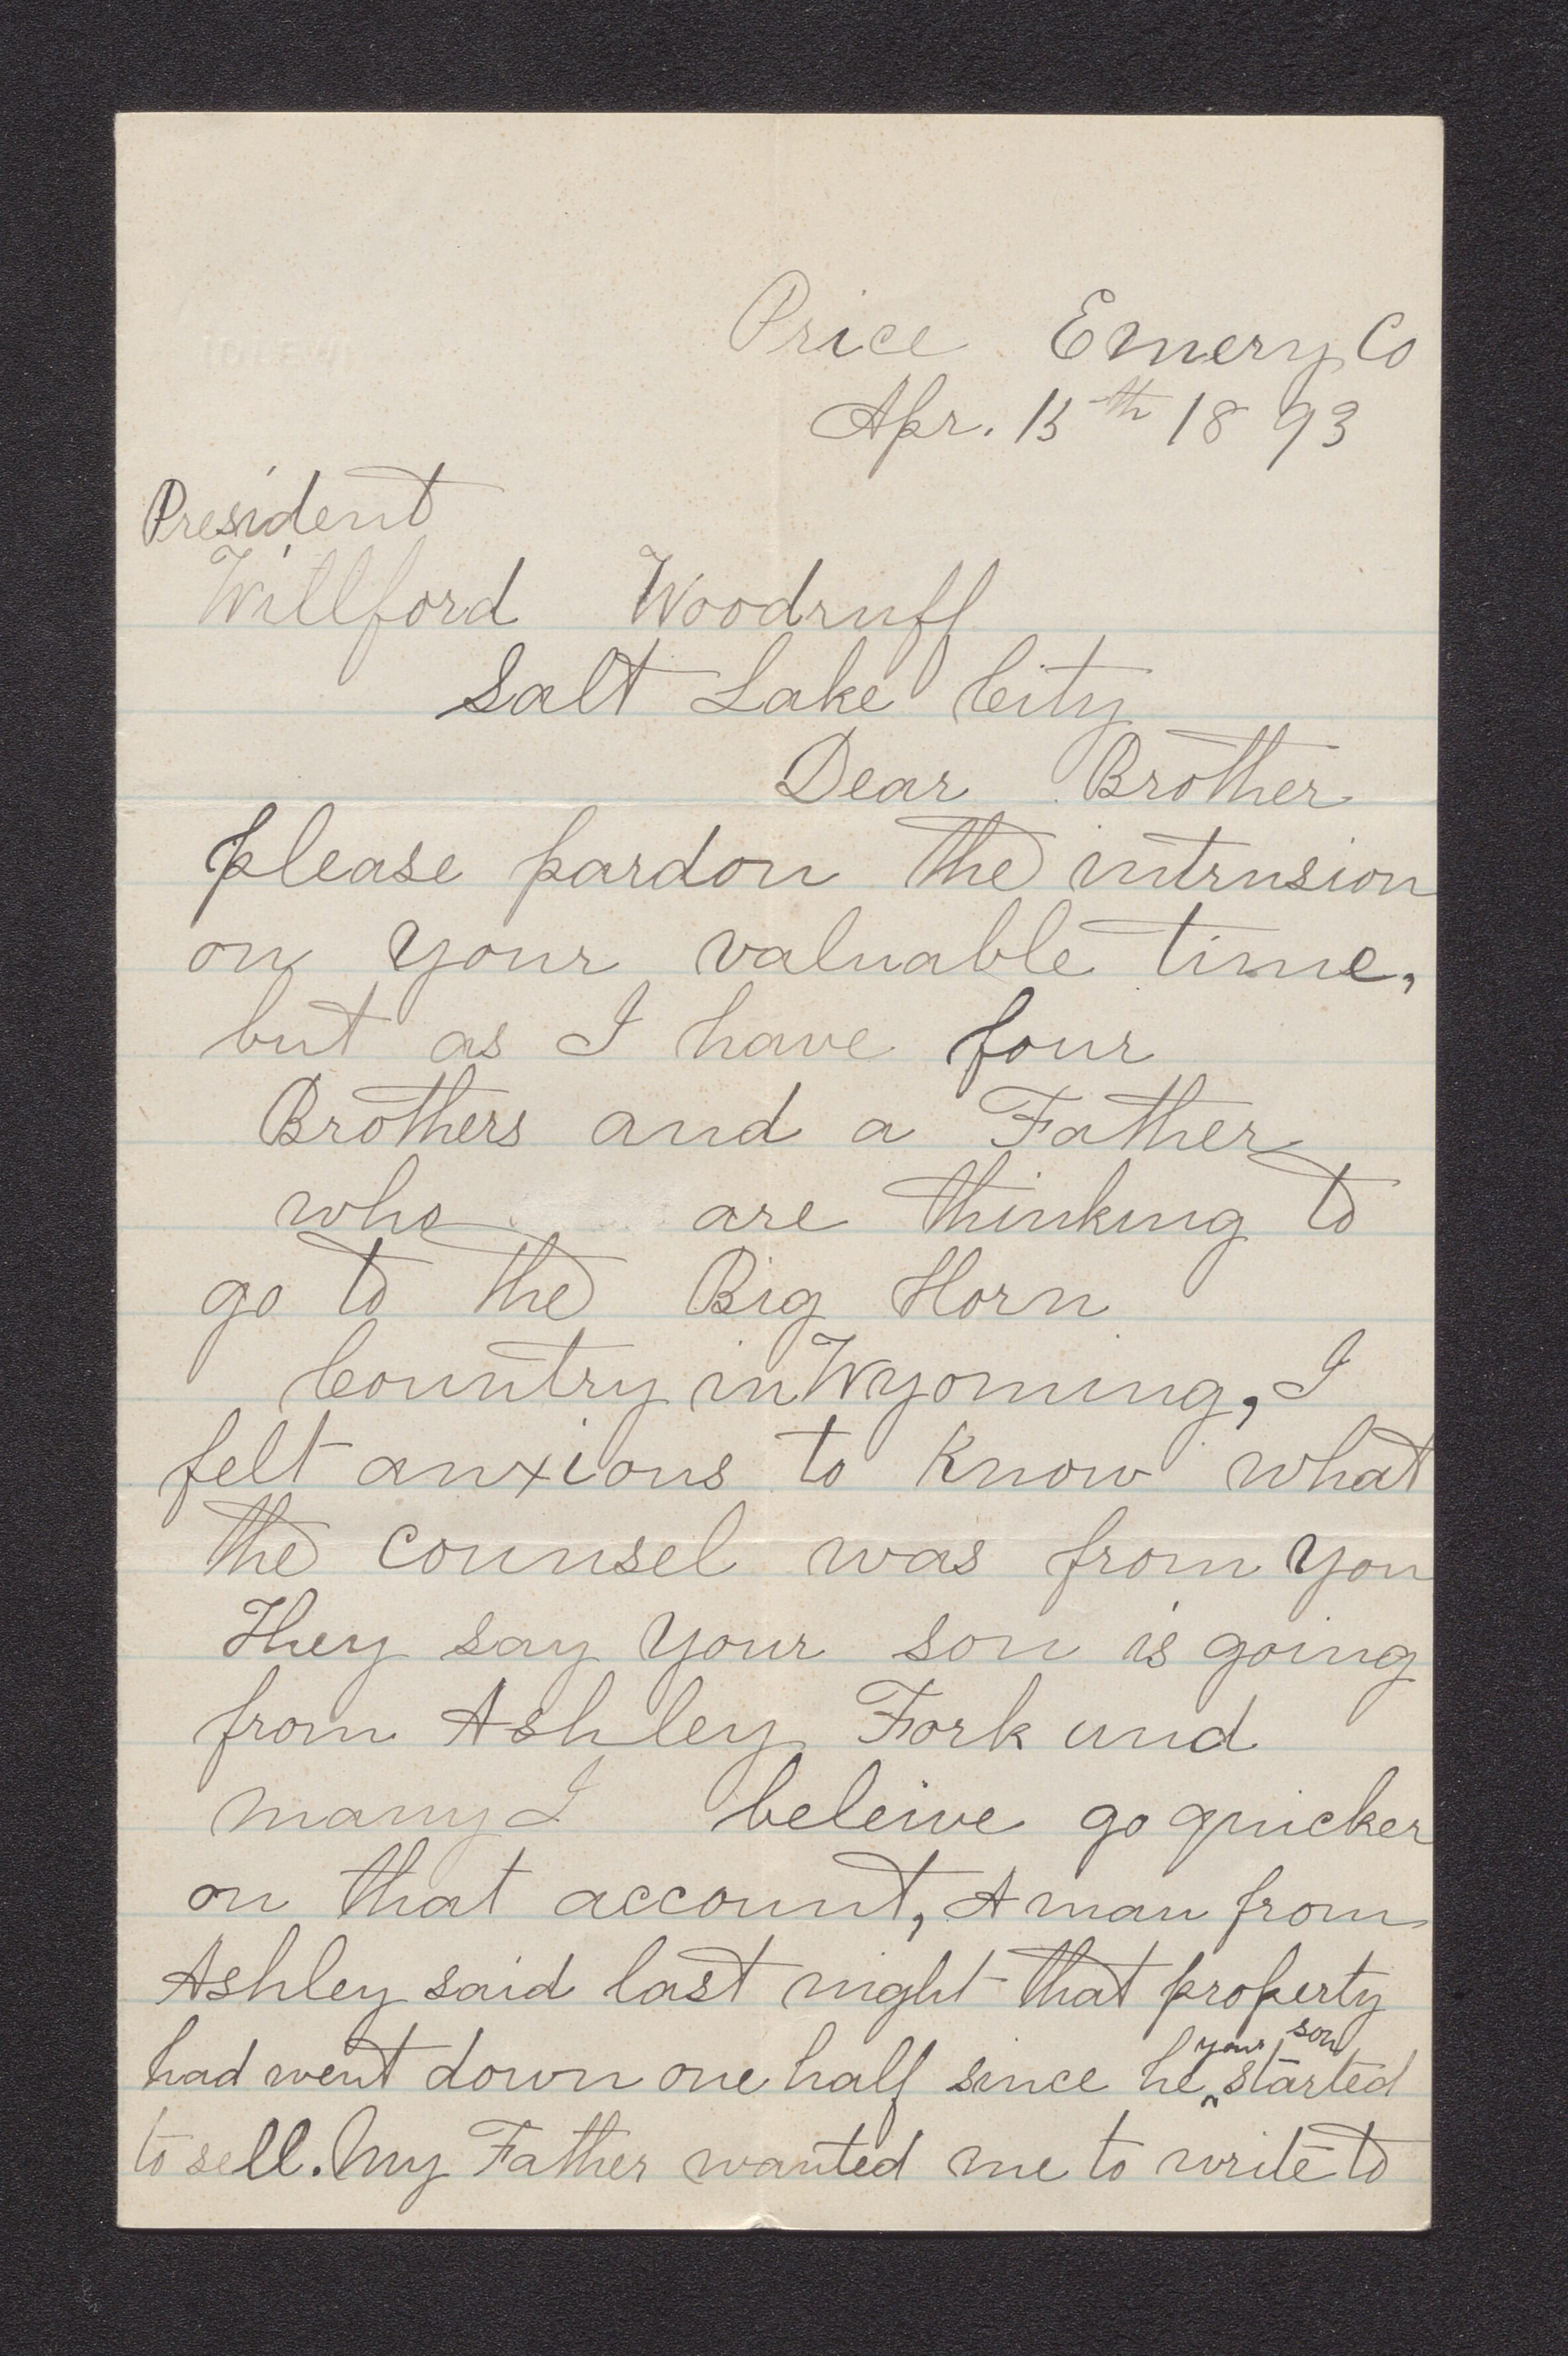 Price Emery Co
Apr. 15th 1893
President
Willford Woodruff
Salt Lake City
Dear Brother
please pardon the intrusion
on your valuable time,
but as I have four
Brothers and a Father
who are thinking to
go to the Big Horn
Country in Wyoming, I
felt anxious to know what
the counsel was from you
They say your son is going
from Ashley Fork and
many I beleive go quicker
on that account, A man from
Ashley said last night that property
your son
had went down one half since he ‸ started
to sell. My Father wanted me to write to